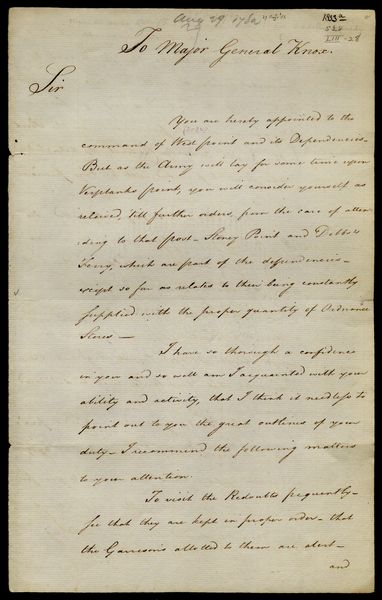 Aug 29 1782
To Major General Knox.
Sir
You are hereby appointed to the
command of West point and its Dependencies–
But as the Army will lay for some time upon
Verplanks point, you will consider yourself as
relieved, till further orders, from the care of atten
ding to that post– Stoney Point and Dobbs's
Ferry, which are part of the dependencies–
except so far as relates to their being constantly
supplied with the proper quantity of Ordnance
Stores–
I have so thorough a confidence
in you and so well am I acquainted with your
ability and activity, that I think it needless to
point out to you the great outlines of your
duty– I recommend the following matters
to your attention.
To visit the Redoubts frequently–
see that they are kept in proper order– that
the Garrisons allotted to them are alert–
and